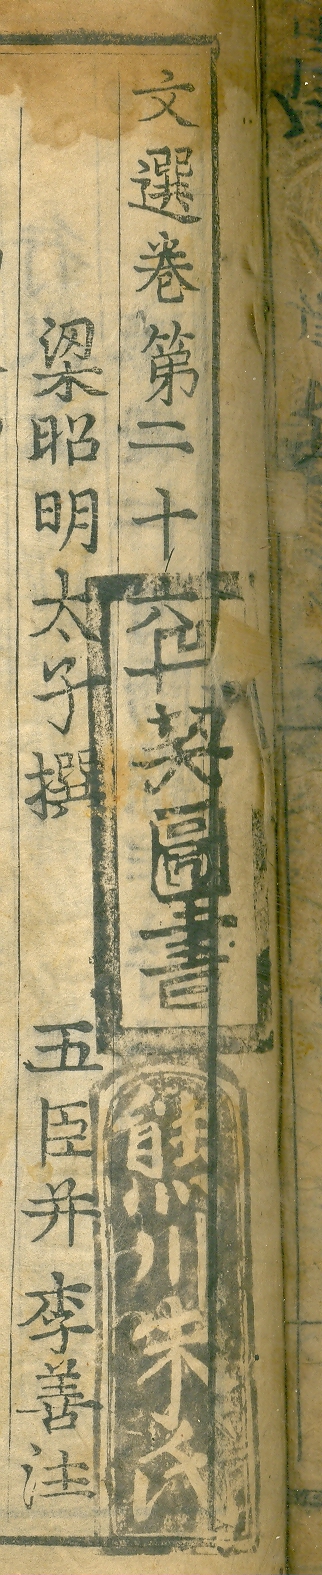 文選卷第二十六
契圖書
熊川朱氏
梁昭明太子撰 五臣并李善注